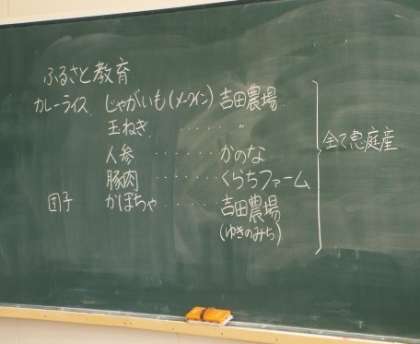 ふるさと教育
カレーライス じゃがいも(メークイン) 吉田農場
玉ねぎ ・・・・・・ 〃
人参 ・・・・・・ かのな
豚肉 ・・・・・・ くらちファーム
団子 かぼちゃ ・・・・・・ 吉田農場
(ゆきのみち)
全て恵庭産